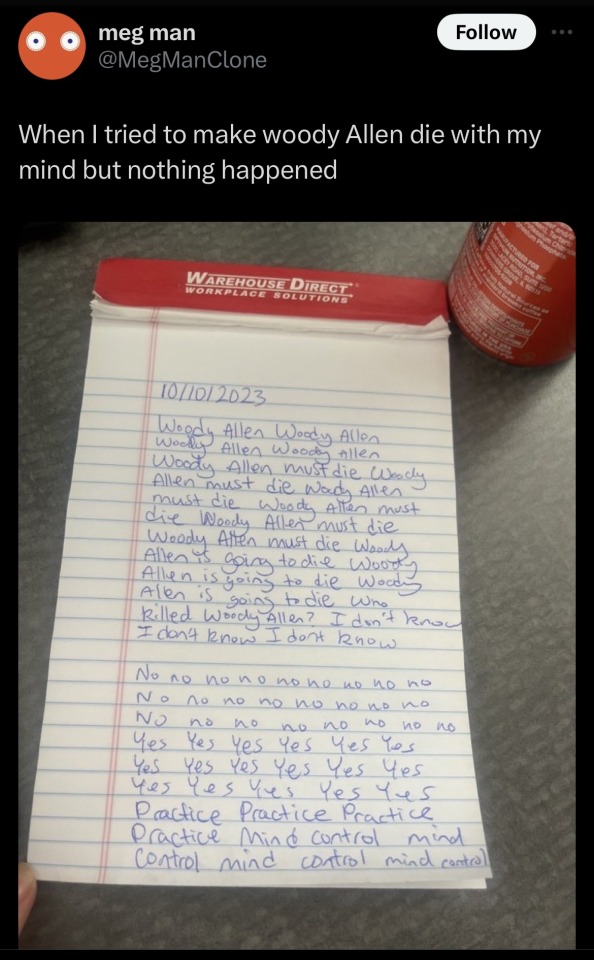 meg man
@MegManClone
Follow
When I tried to make woody Allen die with my
mind but nothing happened
WAREHOUSE DIRECT
WORKPLACE SOLUTIONS
10/10/2023
Woody Allen Woody Allen
Woody Allen Woody Allen
Woody Allen must die Woody
Allen must die Wody Allen
must die Woody Allen must
die Woody Allen must die
Woody Allen must die Woody
Allen is going to die Woody
Allen is going to die Woody
Allen is going to die Who
killed Woody Allen? I don't know
I don't know I don't know
No no no no no no no no no
No no no no no no no no
No no no no no no no no
Yes Yes Yes Yes Yes Yes
Yes Yes Yes Yes Yes Yes
Yes Yes Yes Yes Yes
Practice Practice Practice
Practice Mind control mind
Control mind control mind control